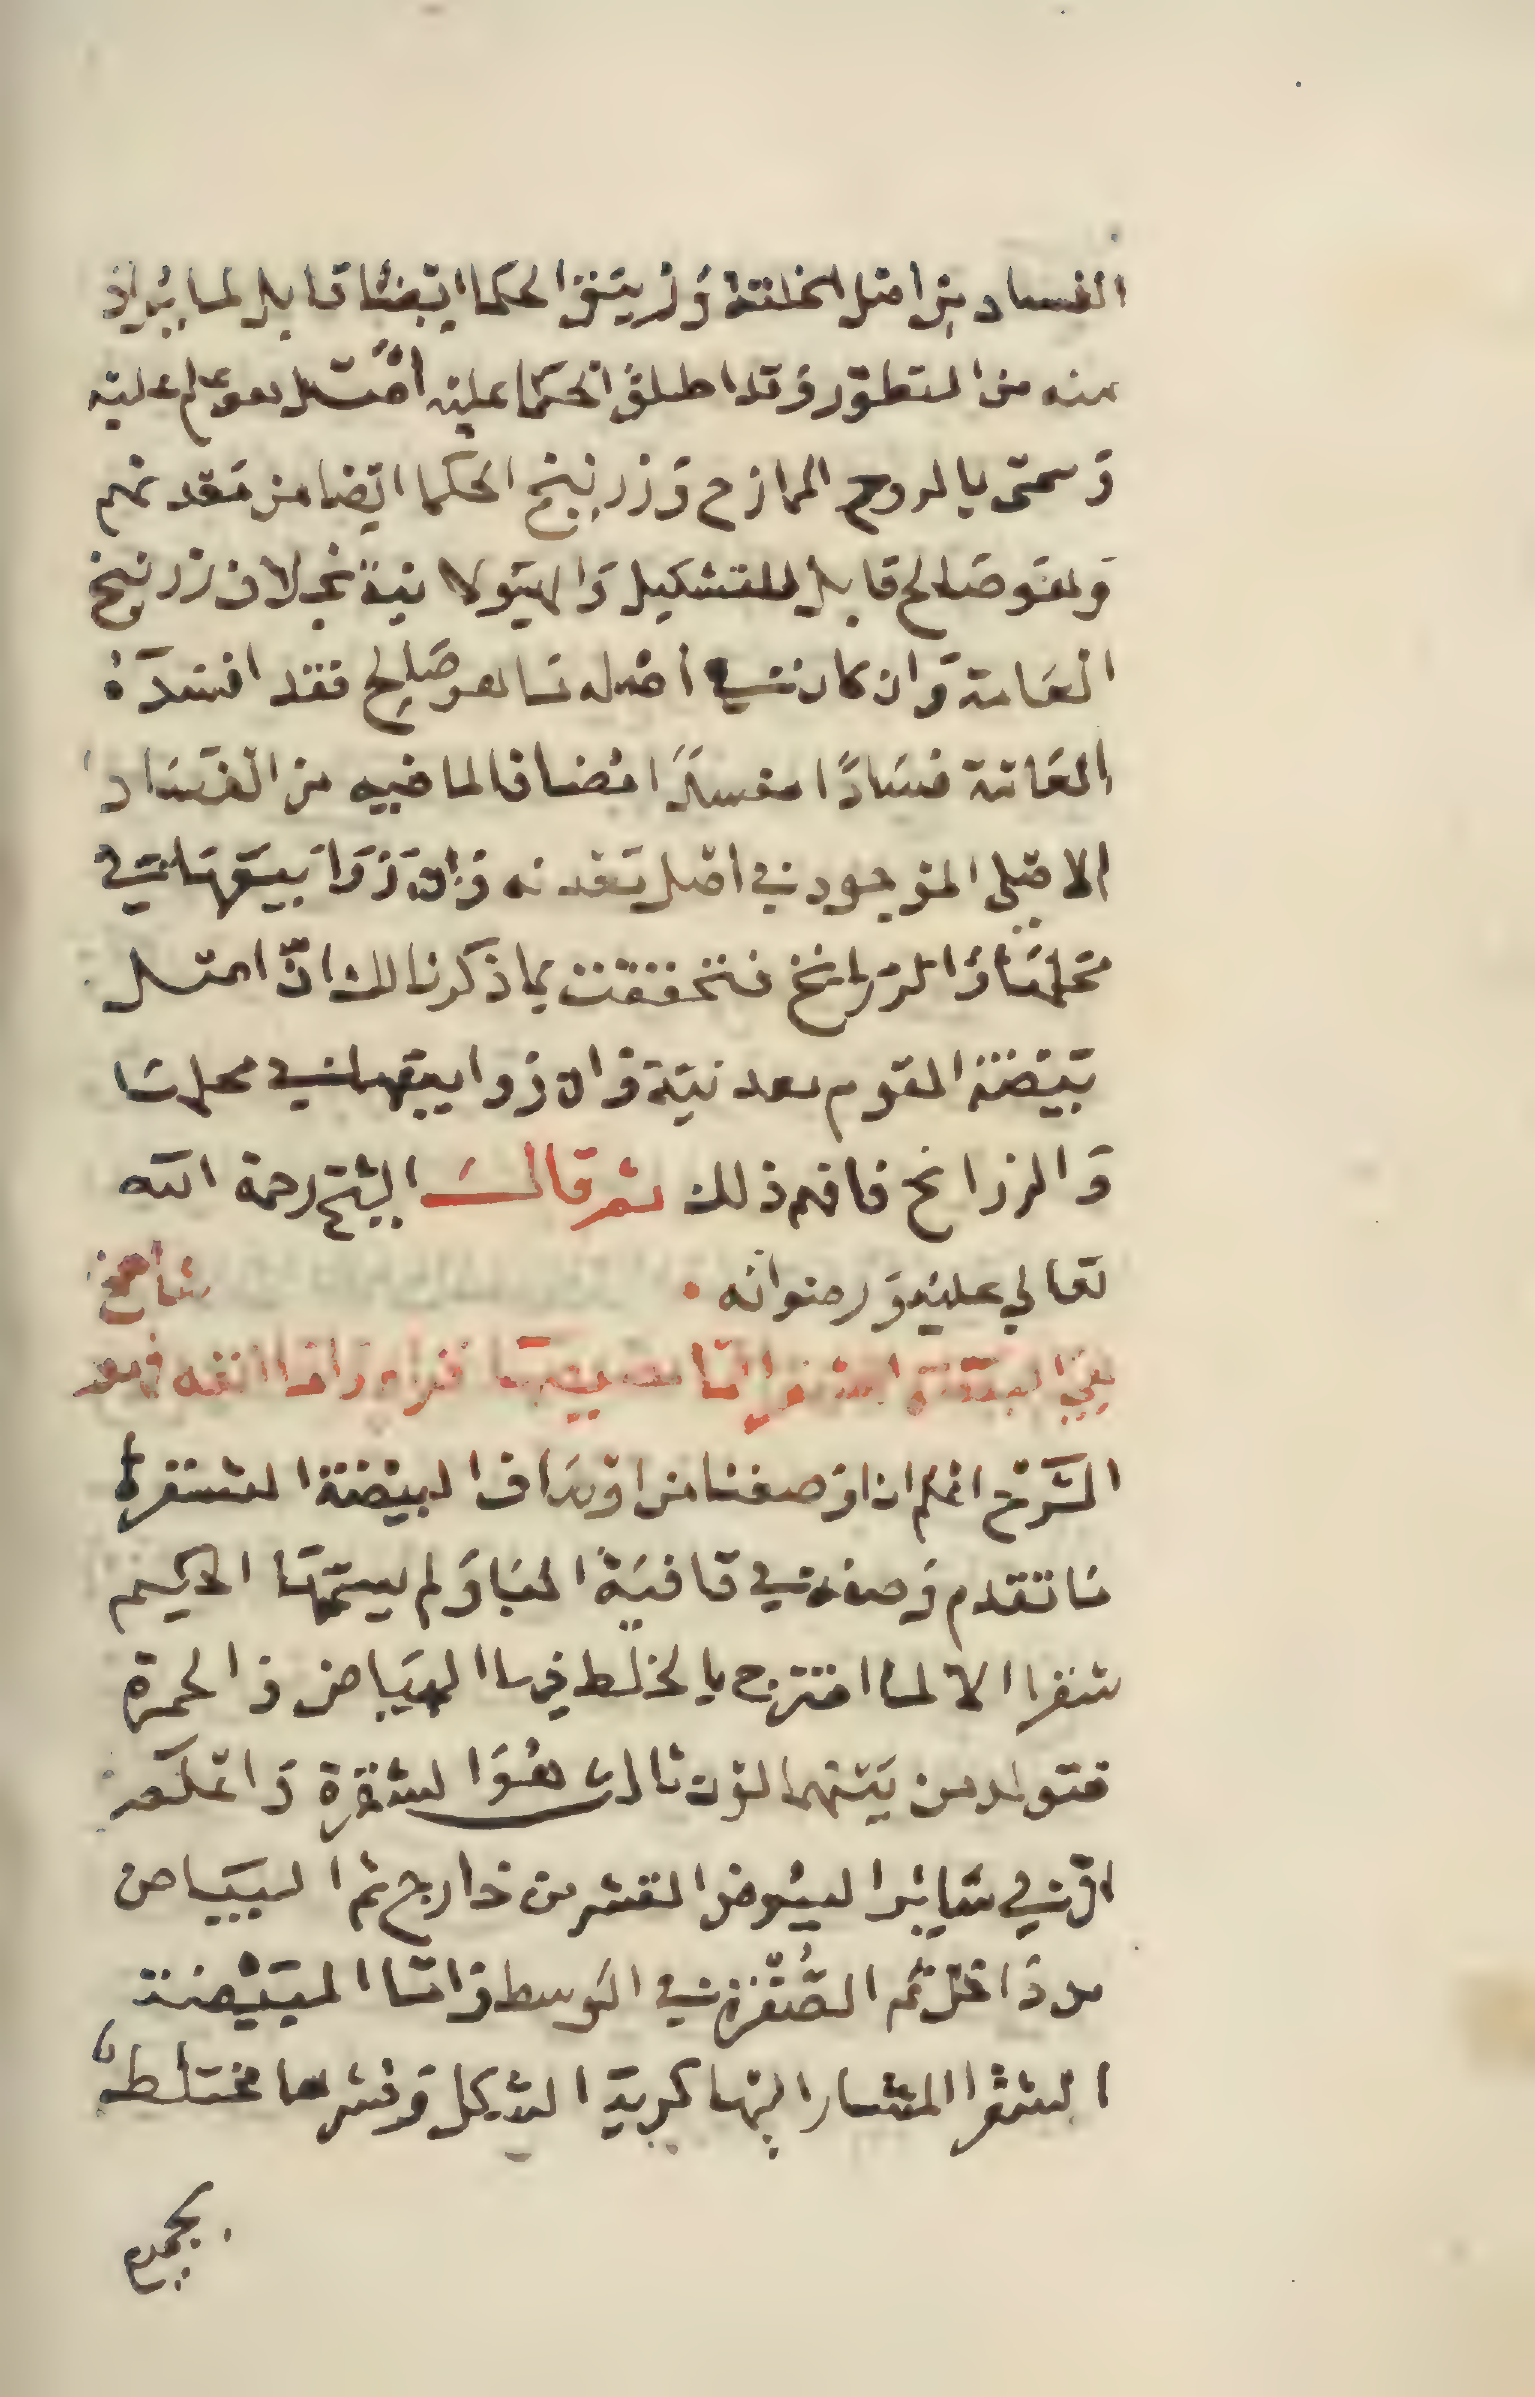 الفساد من اصل الخلقة وزريبق الحكما ايضا قابل لما يراد
منه من التطور وقد اطلق الحكما عليه اصل هو ام عليه
وسمى بالروح الممازج وزرنيخ الحكما ايضا من معدنهم
وهو صالح قابل للتشكيل والهيولانية نعم لان زرنيخ
العامة وان كان في اصله ما هو صالح فقد افسدته
العامة فسادا مفسدا مضافا لما فيه من الفساد
الاصلي الموجود في اصل معدنه وان زوابيقها في
محلها والزرانيخ فتحققت بما ذكرنا لك ان اصل
بيضة القوم معدنية وان زوابيقها في محلها
والزرانيخ فافهم ذلك ثم قال الشيخ رحمة الله
تعالى عليه ورضوانه
الشرح اعلم ان وصفنا من اوصاف البيضة الشقرا
ما تقدم وصفه في قافية البا ولم يسمها الحكيم
شقرا الا لما امتزج بالخلط فيها البياض والحمرة
فتولد من بينهما لون ثالث هو الشقرة واعلم
ان في سائر البيوض القشر من خارج ثم البياض
من داخل ثم الصفرة في الوسط واما البيضة
الشقرا المشار اليها كرية الشكل وقشرها مختلط